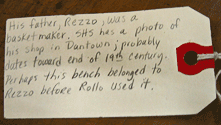 His father, Rezzo, was a
basketmaker. SHS has a photo of
his shop in Dantown; probably
dates toward end of 19th century.
Perhaps this bench belonged to
Rezzo before Rollo used it.